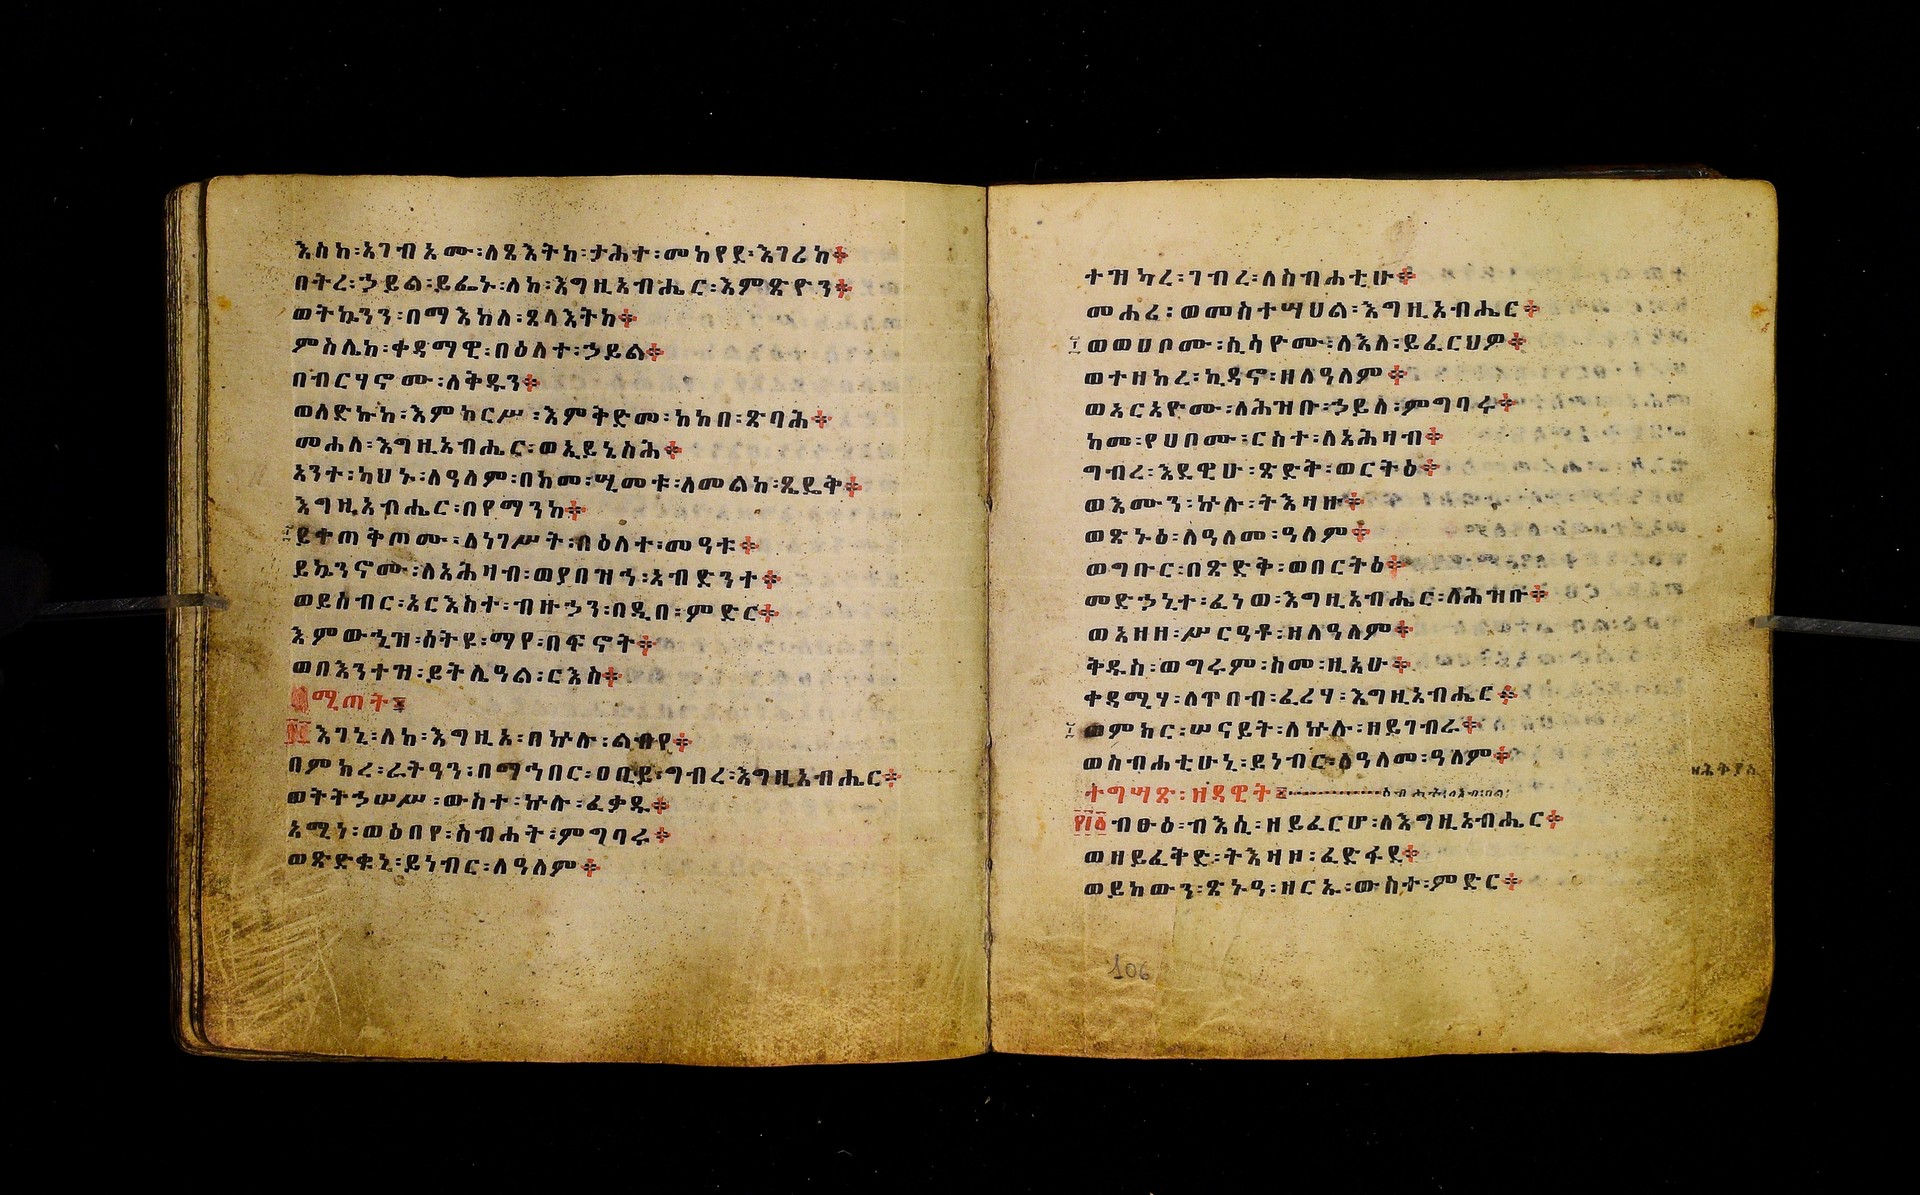 እስከ፡አገብአሙ፡ለጸላእትከ፡ታሕተ፡መከየደ፡እገሪከ፨
በትረ፡ኃይል፡ይፌኑ፡ለከ፡እግዚአብሔር፡እምጽዮን፨
ወትኴንን፡በማእከለ፡ጸላእትከ፨
ምስሌከ፡ቀዳማዊ፡በዕለተ፡ኃይል፨
በብርሃኖሙ፡ለቅዱን፨
ወለድኩከ፡እምከርሥ፡እምቅድመ፡ከከበ፡ጽባሕ፨
መሐለ፡እግዚአብሔር፡ወኢይኔስሕ፨
አንተ፡ካህኑ፡ለዓለም፡በከመ፡ሢመቱ፡ለመልከ፡ጼዴቅ፨
እግዚአብሔር፡በየማንከ፨
ይቀጠቅጦሙ፡ለነገሥት፡በዕለተ፡መዓቱ፨
ይኴንኖሙ፡ለአሕዛብ፡ወያበዝኅ፡አብድንተ፨
ወይሰብር፡አርእስተ፡ብዙኃን፡በዲበ፡ምድር፨
እምውኂዝ፡ዕትዩ፡ማየ፡በፍኖት፨
ወበእንተዝ፡ይትሌዓል፡ርእስ፨
ሚጠት
እገኒ፡ለከ፡እግዚአ፡በኵሉ፡ልብየ፨
በምክረ፡ራትዓን፡በማኅበር፡ዐቢይ፡ግብረ፡እግዚአብሔር፨
ወትትኃሠሥ፡ውስተ፡ኵሉ፡ፈቃዱ፨
አሚነ፡ወዕበየ፡ስብሐት፡ምግባሩ፨
ወጽድቁኒ፡ይነብር፡ለዓለም፨
ተዝካረ፡ገብረ፡ለስብሐቲሁ፨
መሐረ፡ወመስተሣህል፡እግዚአብሔር፨
ወወሀቦሙ፡ሲሳዮሙ፡ለእለ፡ይፈርህዎ፨
ወተዘከረ፡ኪዳኖ፡ዘለዓለም፨
ወአርአዮሙ፡ለሕዝቡ፡ኃይለ፡ምግባሩ፨
ከመ፡የሀቦሙ፡ርስተ፡ለአሕዛብ፨
ግብረ፡እደዊሁ፡ጽድቅ፡ወርትዕ፨
ወእሙን፡ኵሉ፡ትእዛዙ፨
ወጽኑዕ፡ለዓለመ፡ዓለም፨
ወግቡር፡በጽድቅ፡ወበርትዕ፨
መድኃኒተ፡ፈነወ፡እግዚአብሔር፡ለሕዝቡ፨
ወአዘዘ፡ሥርዓቶ፡ዘለዓለም፨
ቅዱስ፡ወግሩም፡ስመ፡ዚአሁ፨
ቀዳሚሃ፡ለጥበብ፡ፈሪሃ፡እግዚአብሔር፨
ወምክር፡ሠናይት፡ለኵሉ፡ዘይገብራ፨
ወስብሐቲሁኒ፡ይነብር፡ለዓለመ፡ዓለም፨
ተግሣጽ፡ዘዳዊት
፻፲፩ ብፁዕ፡ብእሲ፡ዘይፈርሆ፡ለእግዚአብሔር፨
ወዘይፈቅድ፡ትእዛዞ፡ፈድፋደ፨
ወይከውን፡ጽኑዓ፡ዘርኡ፡ውስተ፡ምድር፨
106